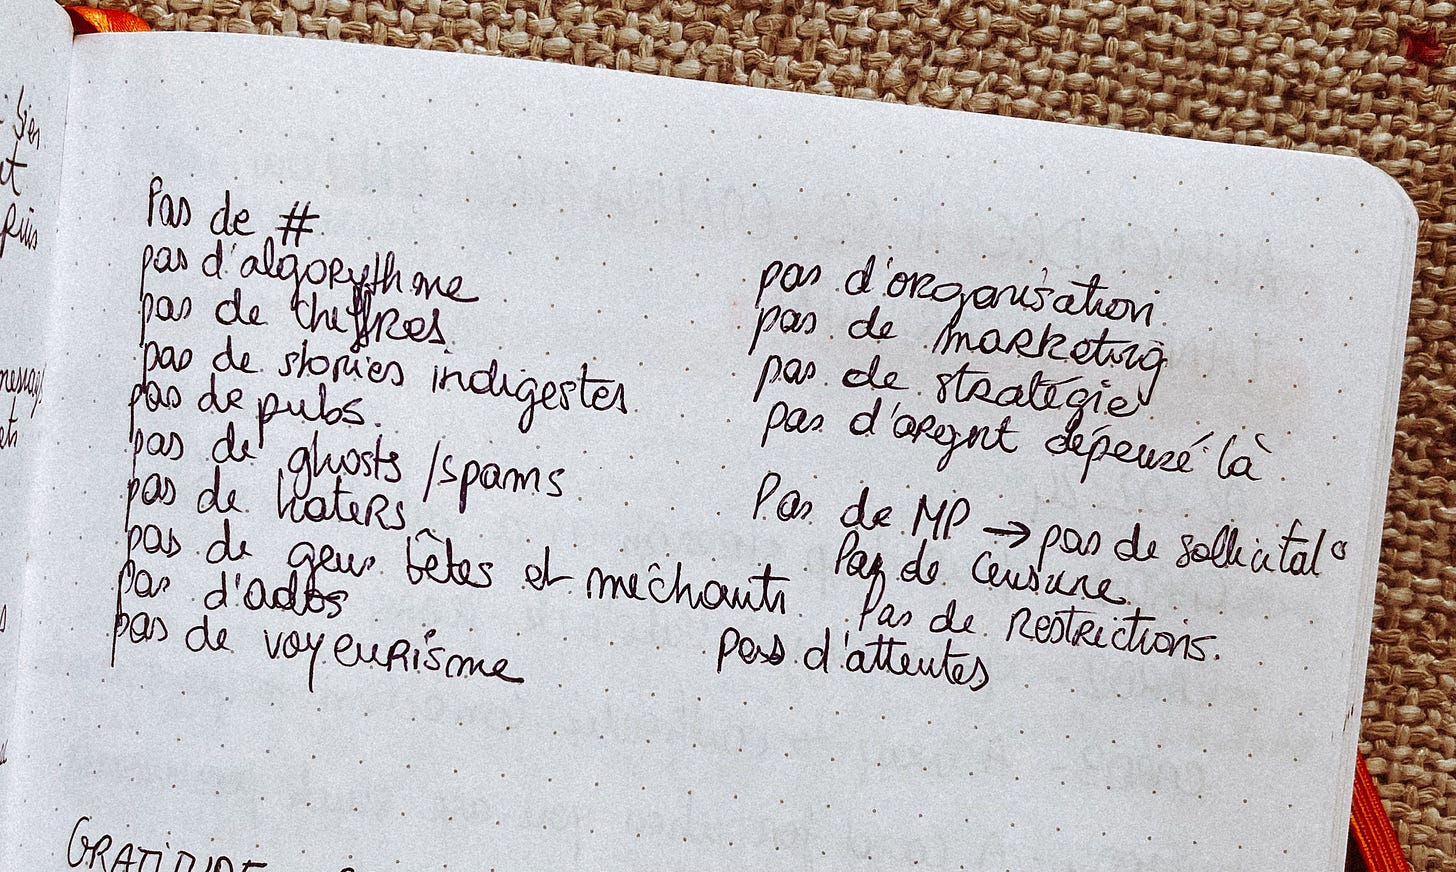 Pas de #
pas d'algorythme
pas de chiffres.
pas de stories indigestes
pas de pubs.
pas de ghosts /spams
pas de haters
pas de gens bêtes et méchants
pas d'ados
pas de voyeurisme
pas d'organisation
pas de marketing
pas de stratégie
pas d'argent dépensé là
Pas de MP → pas de sollicitat°
Pas de censure
Pas de restrictions.
pas d'attentes
GRATITUDE